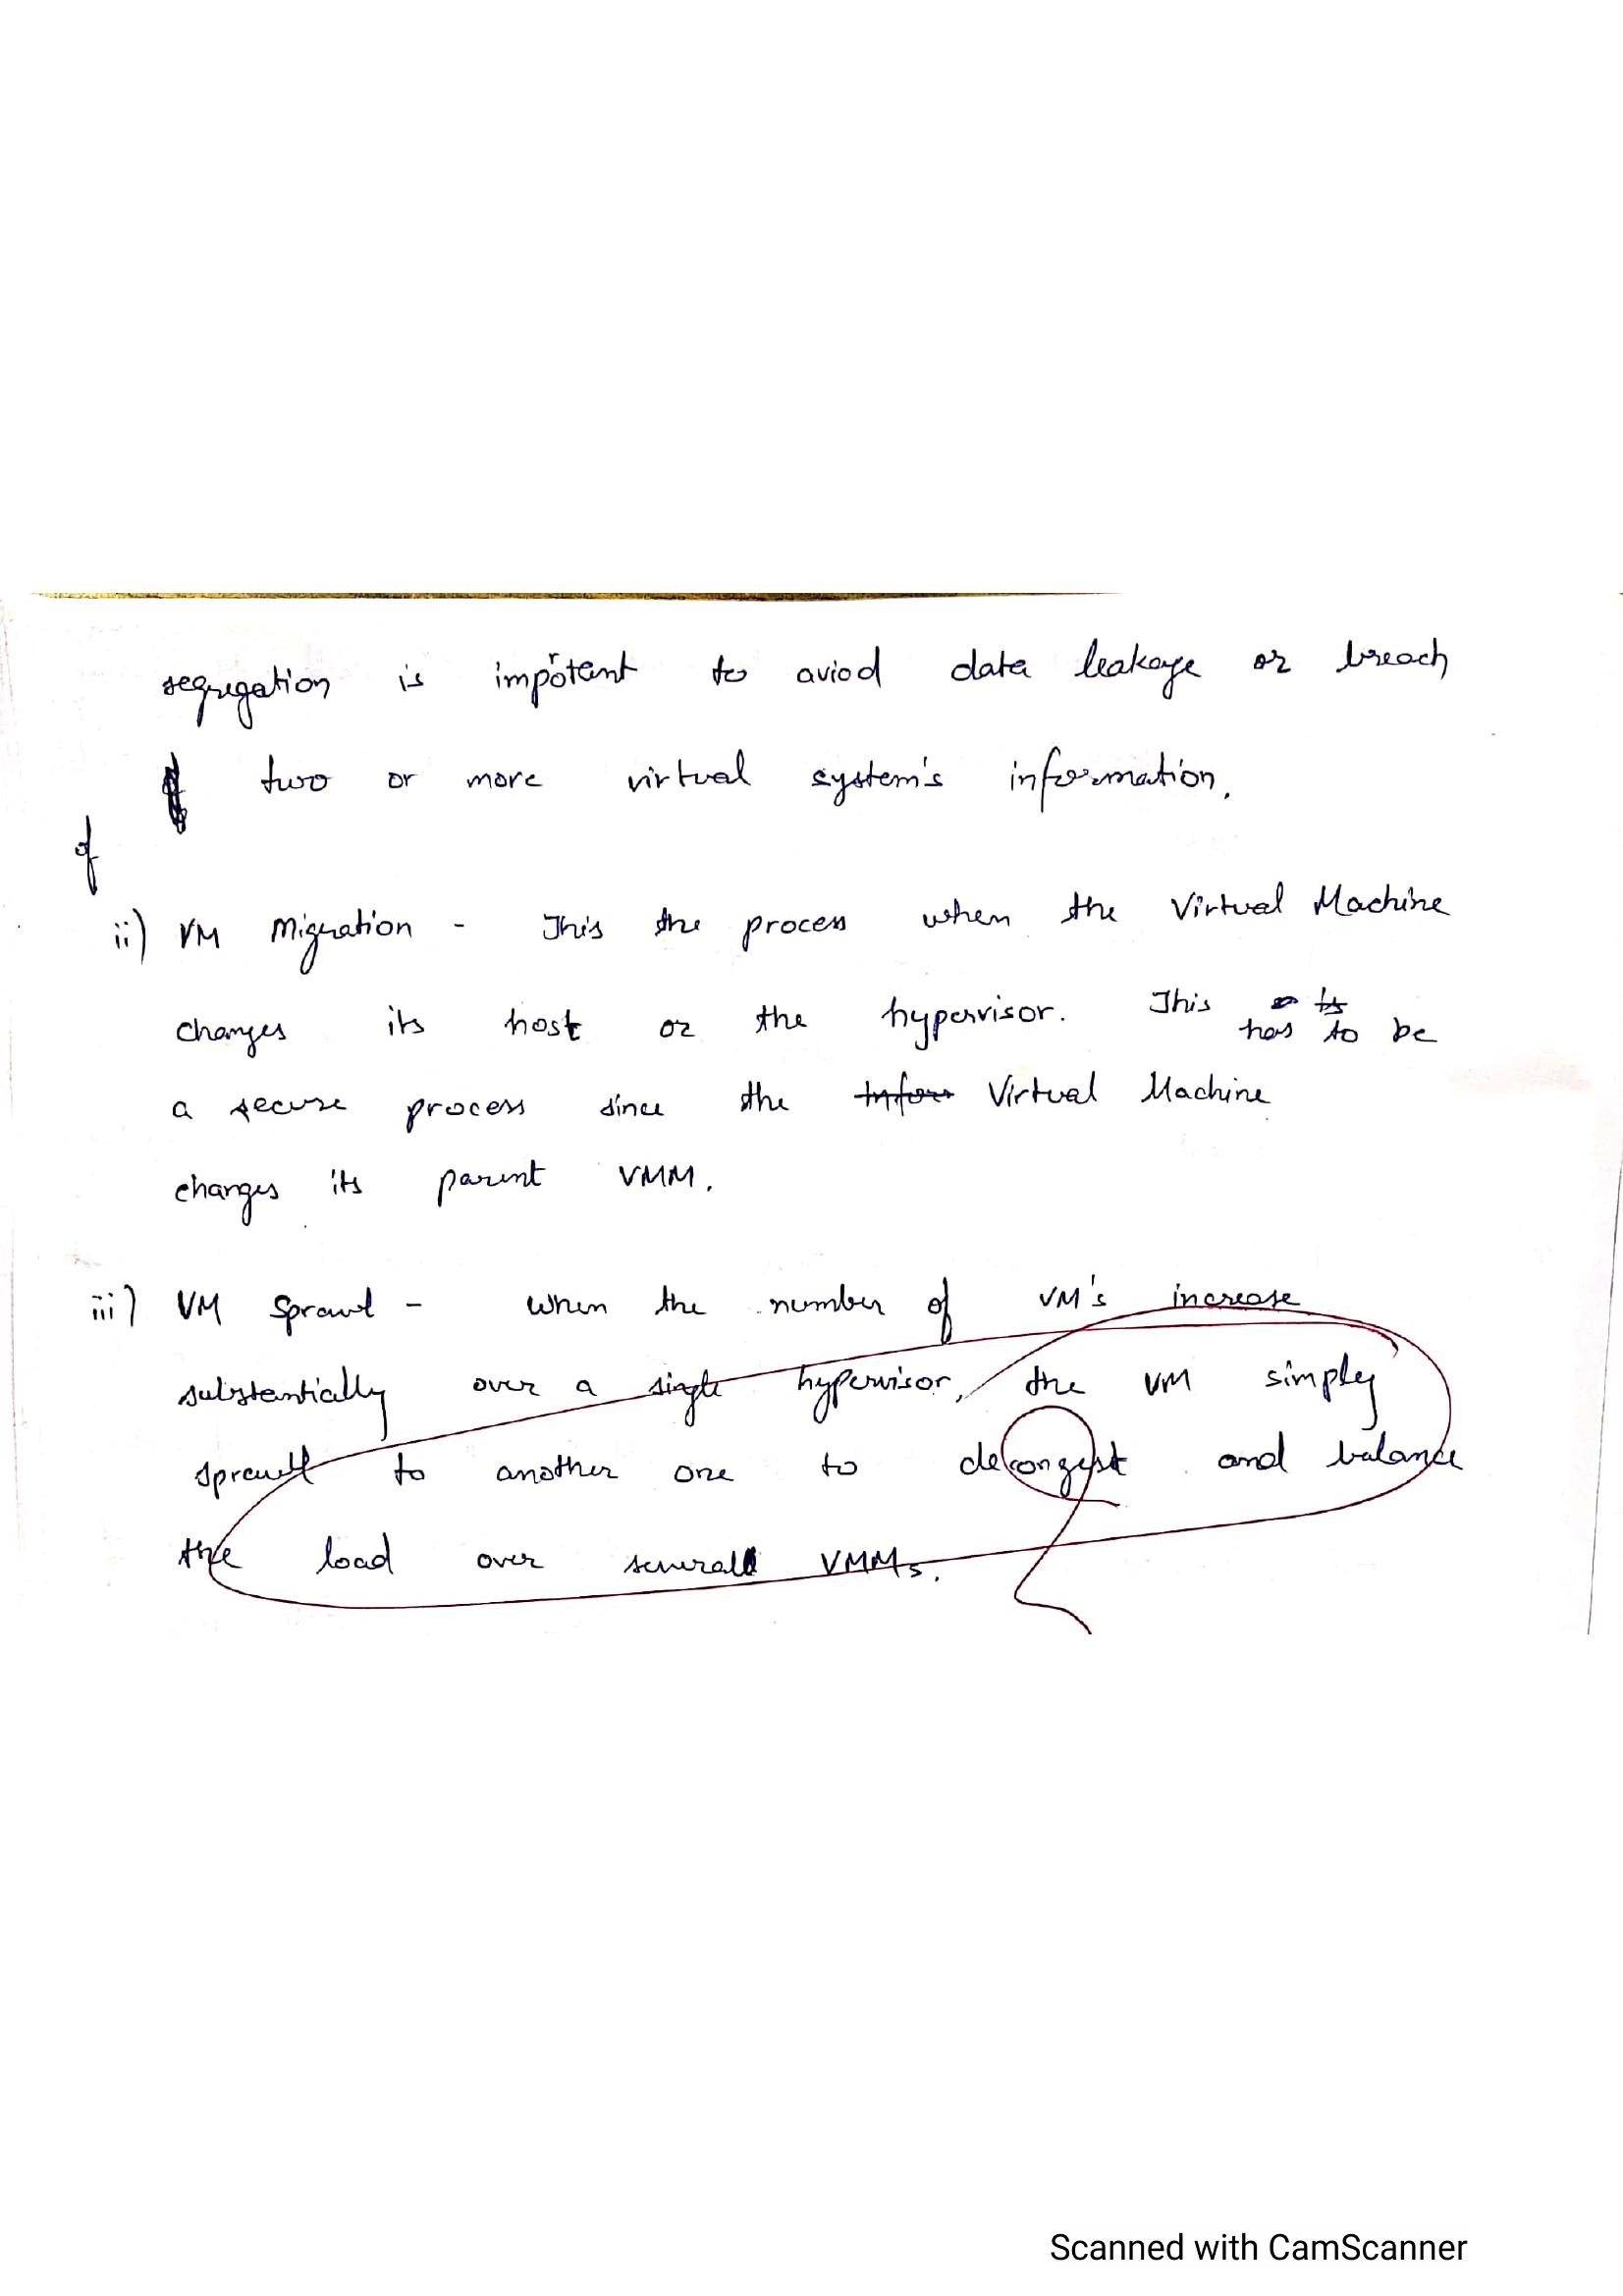 segregation is impotent to aviod data leakage or breach
r
two or more virtual system's information.
of
ii) VM Migration - This the process when the Virtual Machine
changes its host or the hypervisor. This has to be
a secure process since the Virtual Machine
changes its parent VMM.
iii) VM Sprawl - when the number of VM's increase
substantially over a single hypervisor, the VM simply
sprawll to another one to decongest and balance
the load over several VMMs.
Scanned with CamScanner